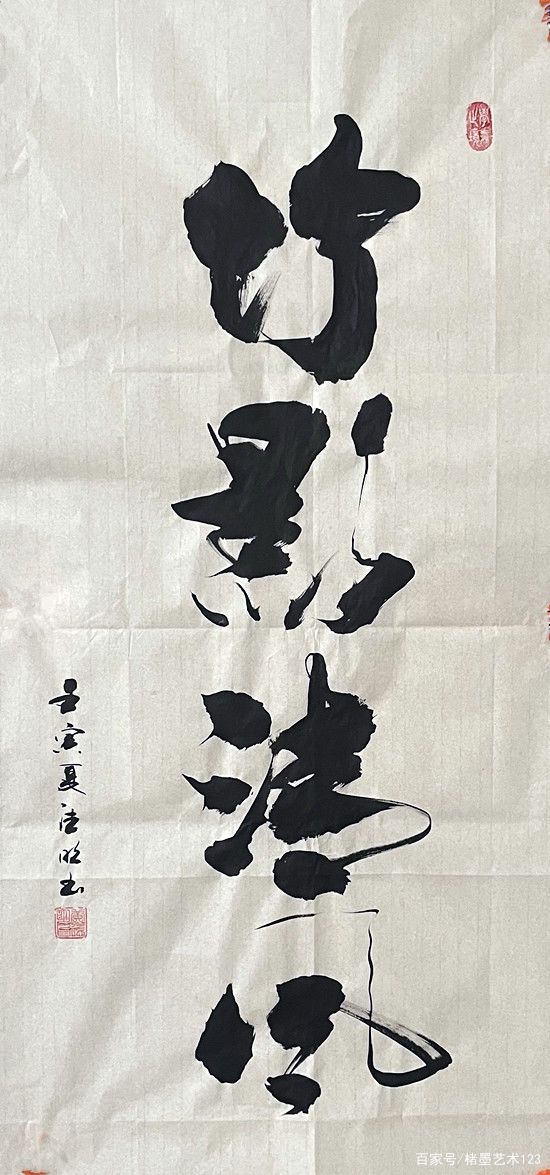 竹影清风
壬寅夏明书
百家号/楮墨艺术123